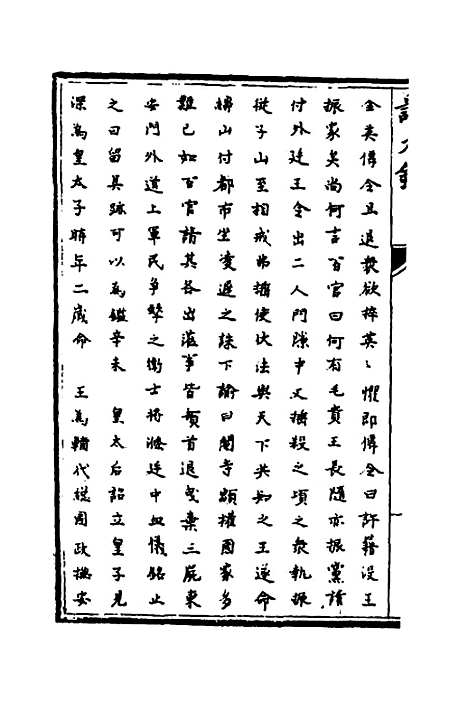 金英傳令且退衆欲捽英〻懼即傳令曰許籍没王
振家矣尚何言百官曰何有毛貴王長隨亦振黨請
付外廷王令出二人門隙中又捶殺之頃之衆執振
從子山至相戒弗捶使伏法與天下共知之王遂命
縛山付都市坐凌遲之誅下諭曰閹寺顓權國家多
難已如百官請其各出蒞事皆頓首退曳棄三屍東
安門外道上軍民爭擊之衛士將滌廷中血儀銘止
之曰留其跡可以爲鑑辛未　皇太后詔立皇子見
深爲皇太子時年二歲命　王爲輔代總國政撫安